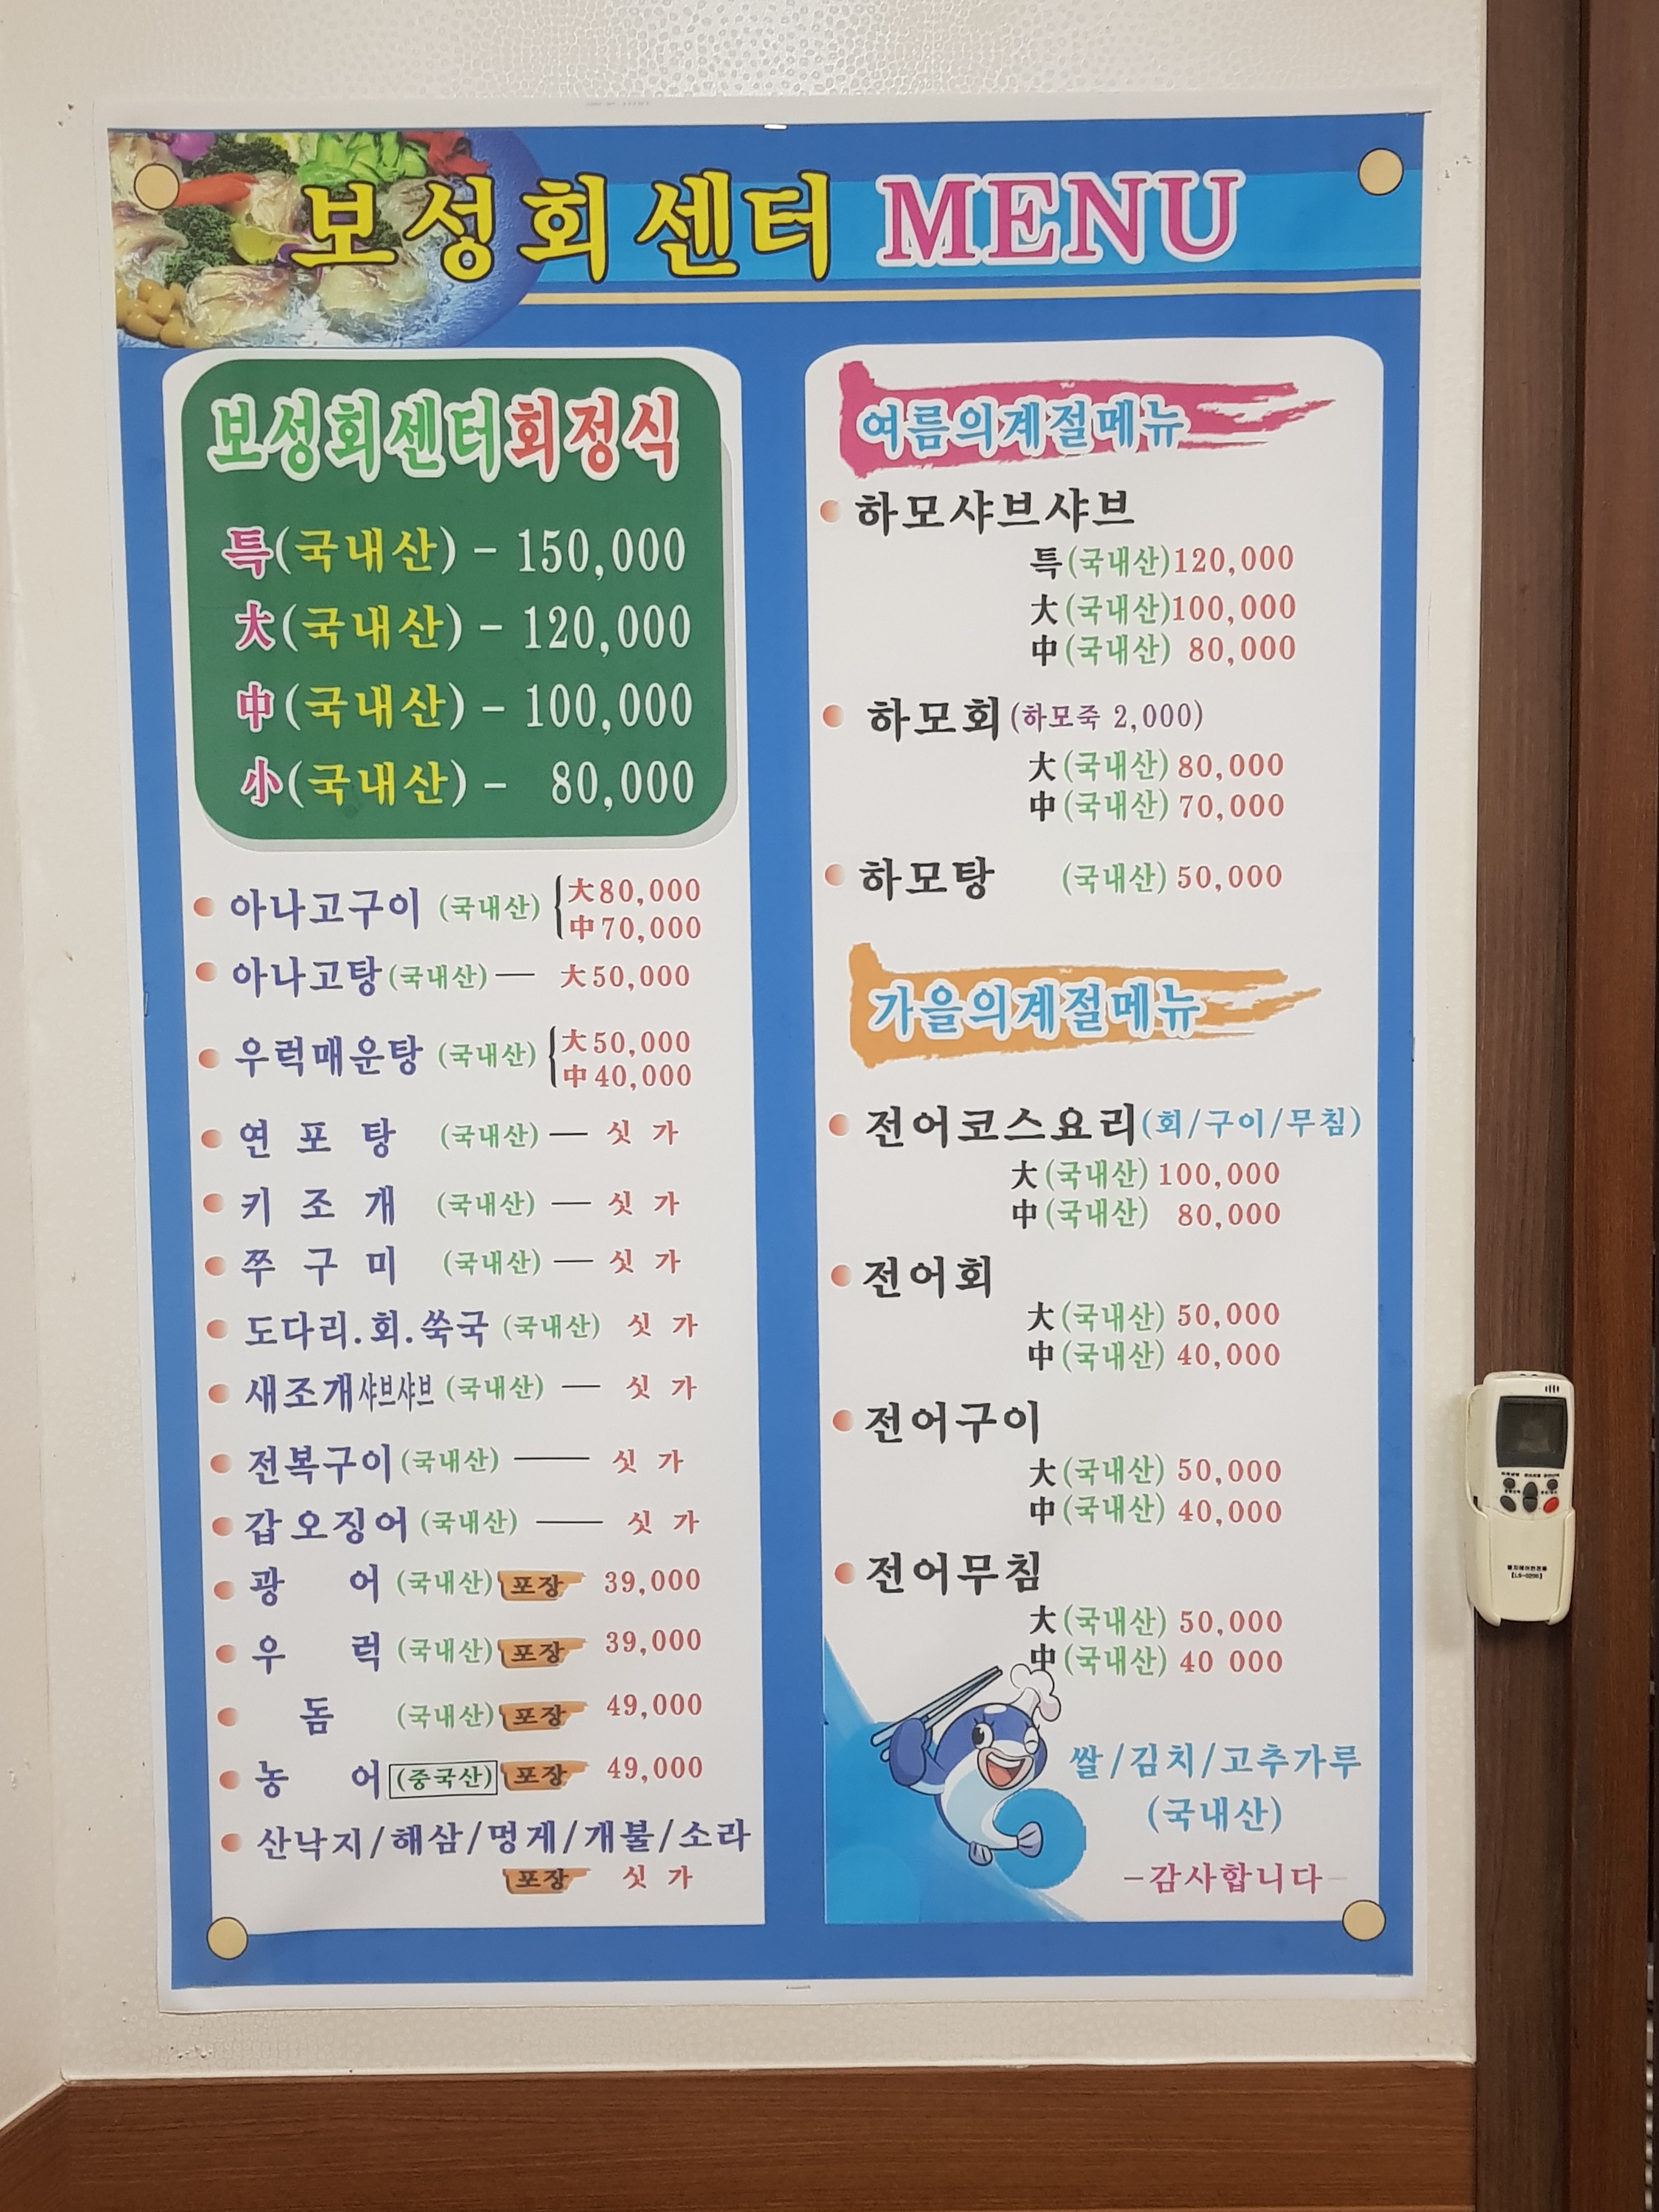 보성회센터 MENU
보성회센터회정식
특(국내산) - 150,000
大(국내산) - 120,000
中(국내산) - 100,000
小(국내산) - 80,000
아나고구이 (국내산) 大80,000
中70,000
아나고탕(국내산) — 大50,000
우럭매운탕 (국내산) 大50,000
中40,000
연 포 탕 (국내산) — 싯 가
키 조 개 (국내산) — 싯 가
쭈 구 미 (국내산) — 싯 가
도다리.회.쑥국 (국내산) 싯 가
새조개샤브샤브 (국내산) — 싯 가
전복구이(국내산) — 싯 가
갑오징어(국내산) — 싯 가
광 어 (국내산) 포장 39,000
우 럭 (국내산) 포장 39,000
돔 (국내산) 포장 49,000
농 어 (중국산) 포장 49,000
산낙지/해삼/멍게/개불/소라
포장 싯 가
여름의계절메뉴
하모샤브샤브
특(국내산)120,000
大(국내산)100,000
中(국내산) 80,000
하모회(하모죽 2,000)
大(국내산) 80,000
中(국내산) 70,000
하모탕 (국내산) 50,000
가을의계절메뉴
전어코스요리(회/구이/무침)
大(국내산) 100,000
中(국내산) 80,000
전어회
大(국내산) 50,000
中(국내산) 40,000
전어구이
大(국내산) 50,000
中(국내산) 40,000
전어무침
大(국내산) 50,000
中(국내산) 40 000
쌀/김치/고추가루
(국내산)
-감사합니다-